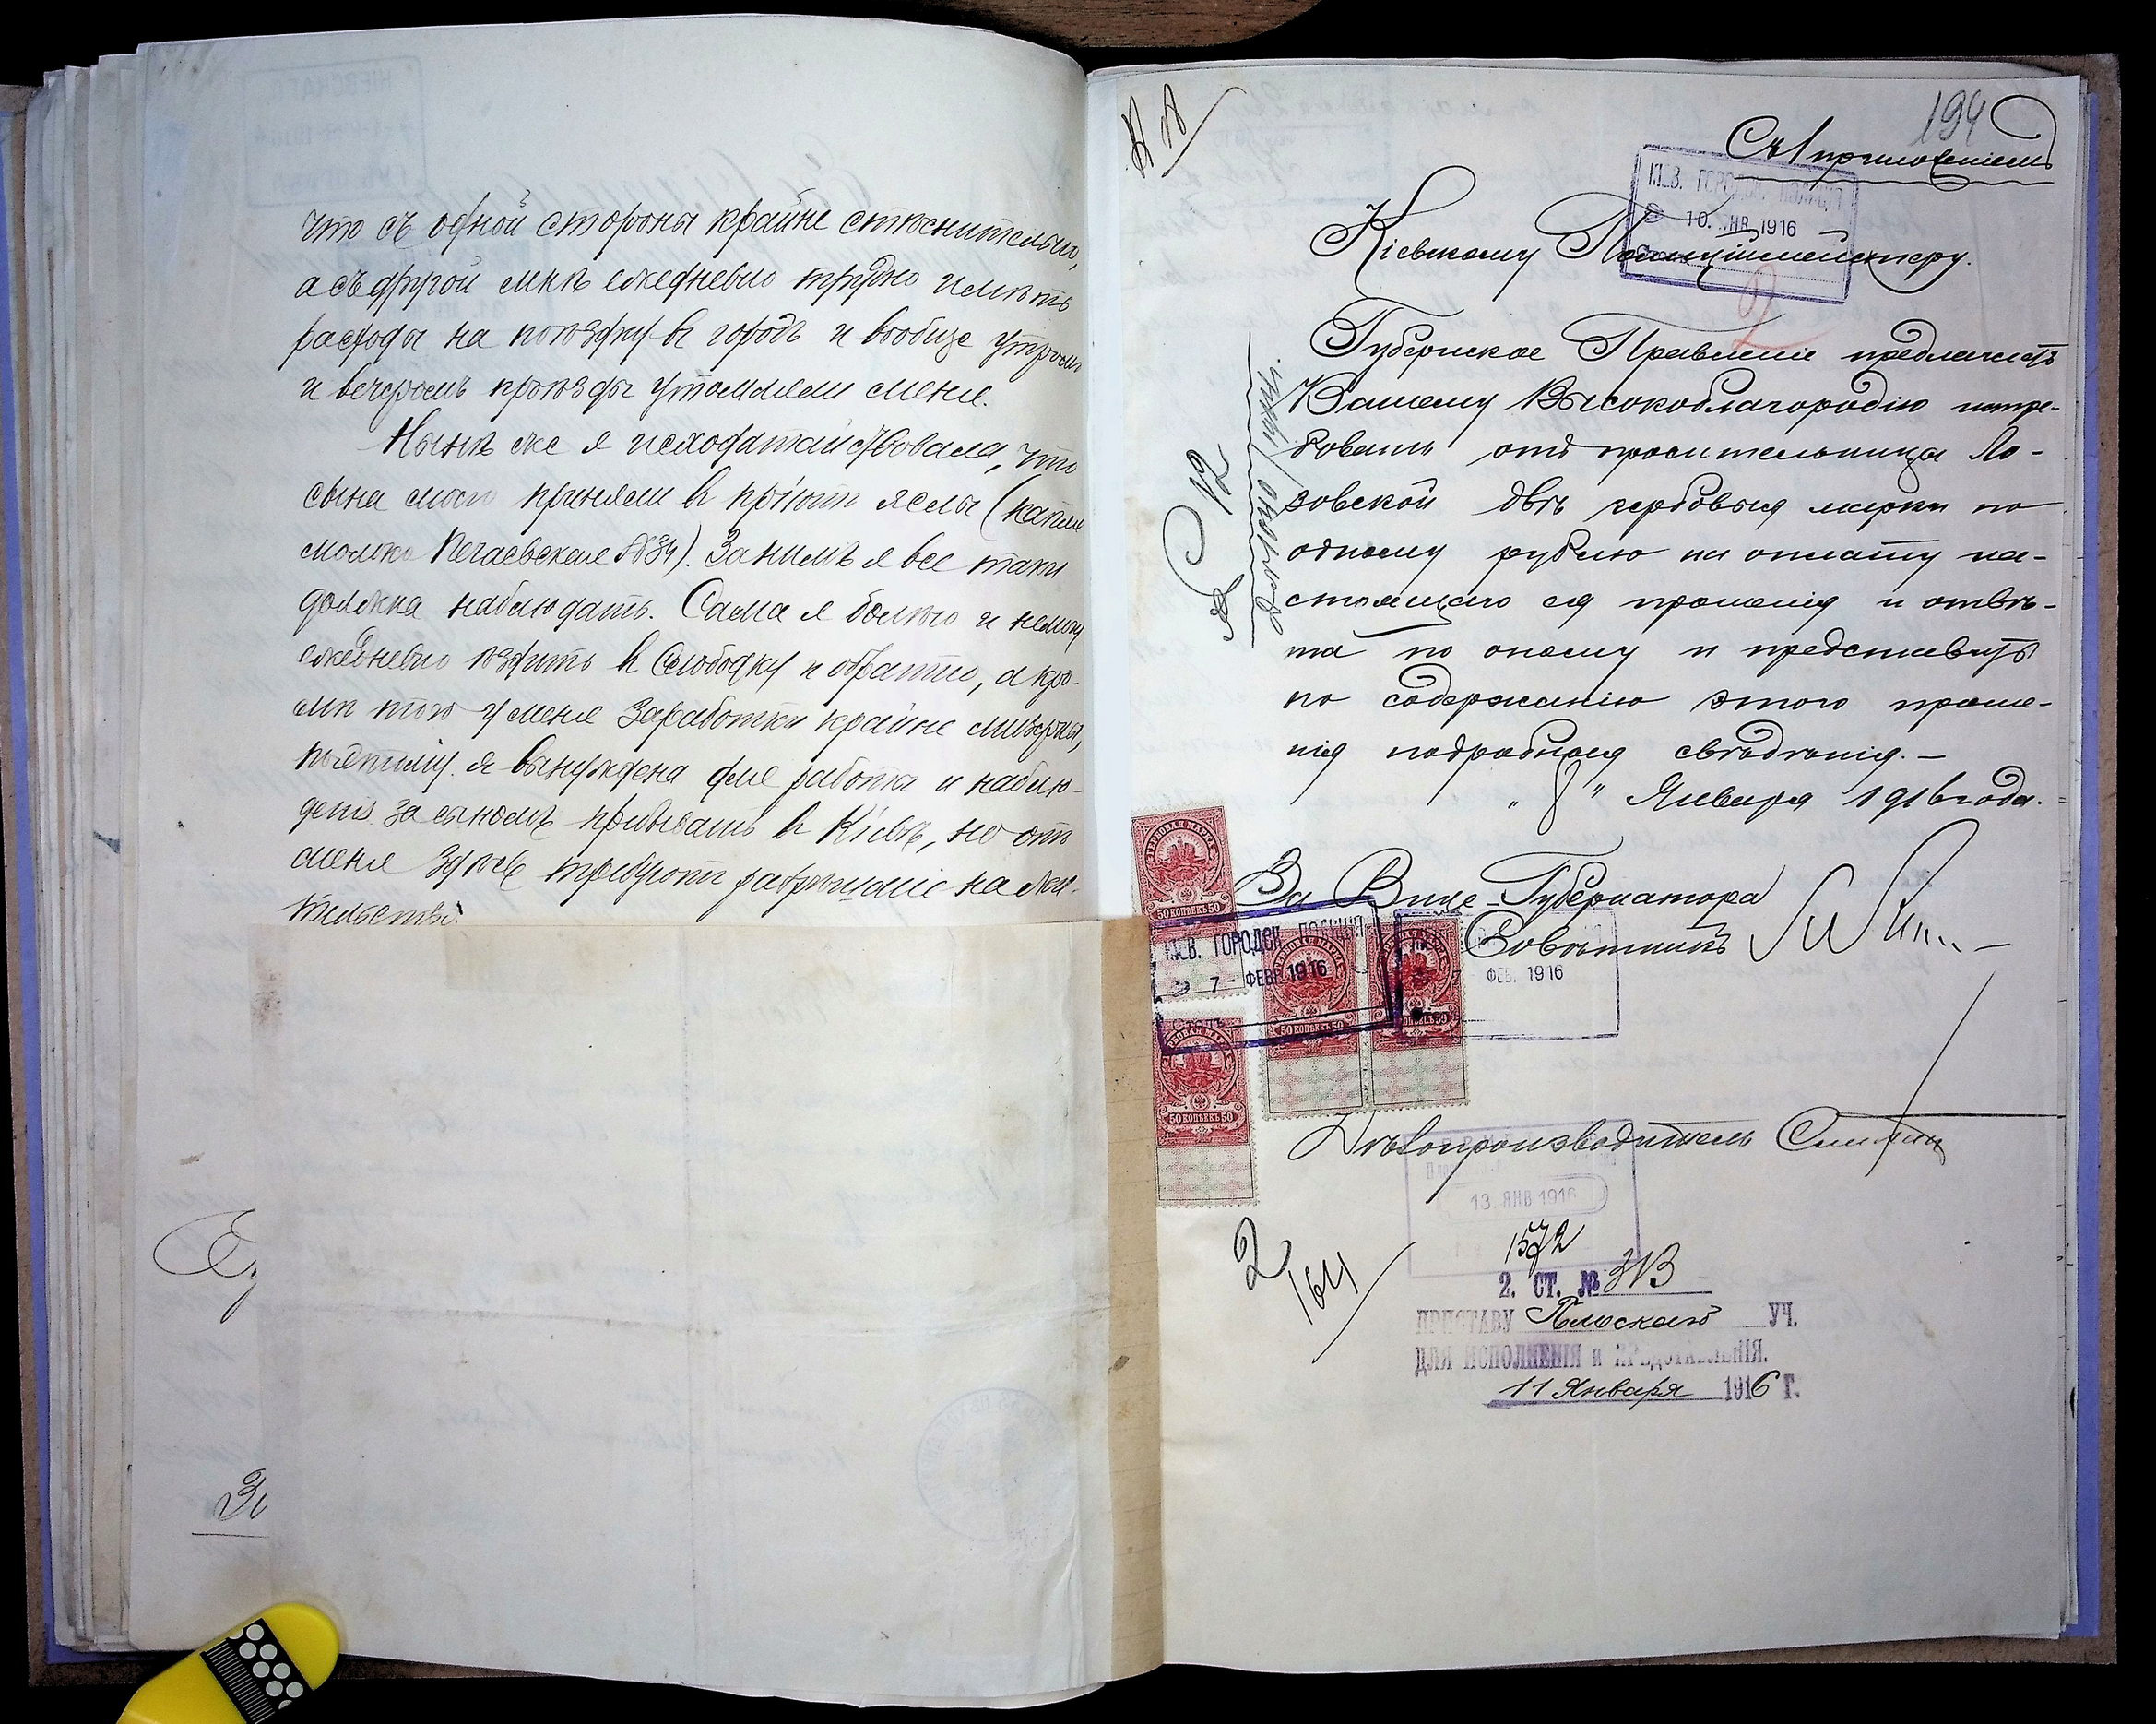 что съ одной стороны крайне стѣснительно,
а съ другой мнѣ ежедневно трудно имѣть
расходы на поѣздку въ городъ и вообще утромъ
и вечеромъ проѣзды утомляли меня.
Нынѣ же я исходатайствовала, что
сына моего приняли въ пріютъ ясли (капля
молока Печаевская №34). За нимъ я все таки
должна наблюдать. Сама я болѣю и не могу
ежедневно ѣздить въ Слободку и обратно, а кро-
мѣ того у меня заработки крайне мизерны,
поэтому я вынуждена для работы и наблю-
денія за сыномъ пребывать въ Кіевѣ, но отъ
меня здѣсь требуютъ разрѣшеніе на жи-
тельство.
194
Съ 1 приложеніемъ
КІЕВ. ГОРОДСК. ПОЛИЦІЯ
10. ЯНВ. 1916
Кіевскому Полиціймейстеру.
2
Губернское Правленіе предлагаетъ
Вашему Высокоблагородію истре-
бовать отъ просительницы Ло-
зовской двѣ гербовыя марки по
одному рублю на оплату на-
стоящаго ея прошенія и отвѣ-
та по оному и представить
по содержанію этого проше-
нія подробныя свѣдѣнія.—
"8" Января 1916 года.
За Вице-Губернатора
Совѣтникъ
50 КОПѢЕКЪ 50
КІЕВ. ГОРОДСК. ПОЛИЦІЯ
7 - ФЕВР. 1916
7 ФЕВ. 1916
50 КОПѢЕКЪ 50
50 КОПѢЕКЪ 50
50 КОПѢЕКЪ 50
Дѣлопроизводитель
13. ЯНВ 1916
1572
2
164
2. СТ. № 313
ПРИСТАВУ Плоскаго УЧ.
ДЛЯ ИСПОЛНЕНІЯ и ПРЕДСТАВЛЕНІЯ.
11 Января 1916 Г.